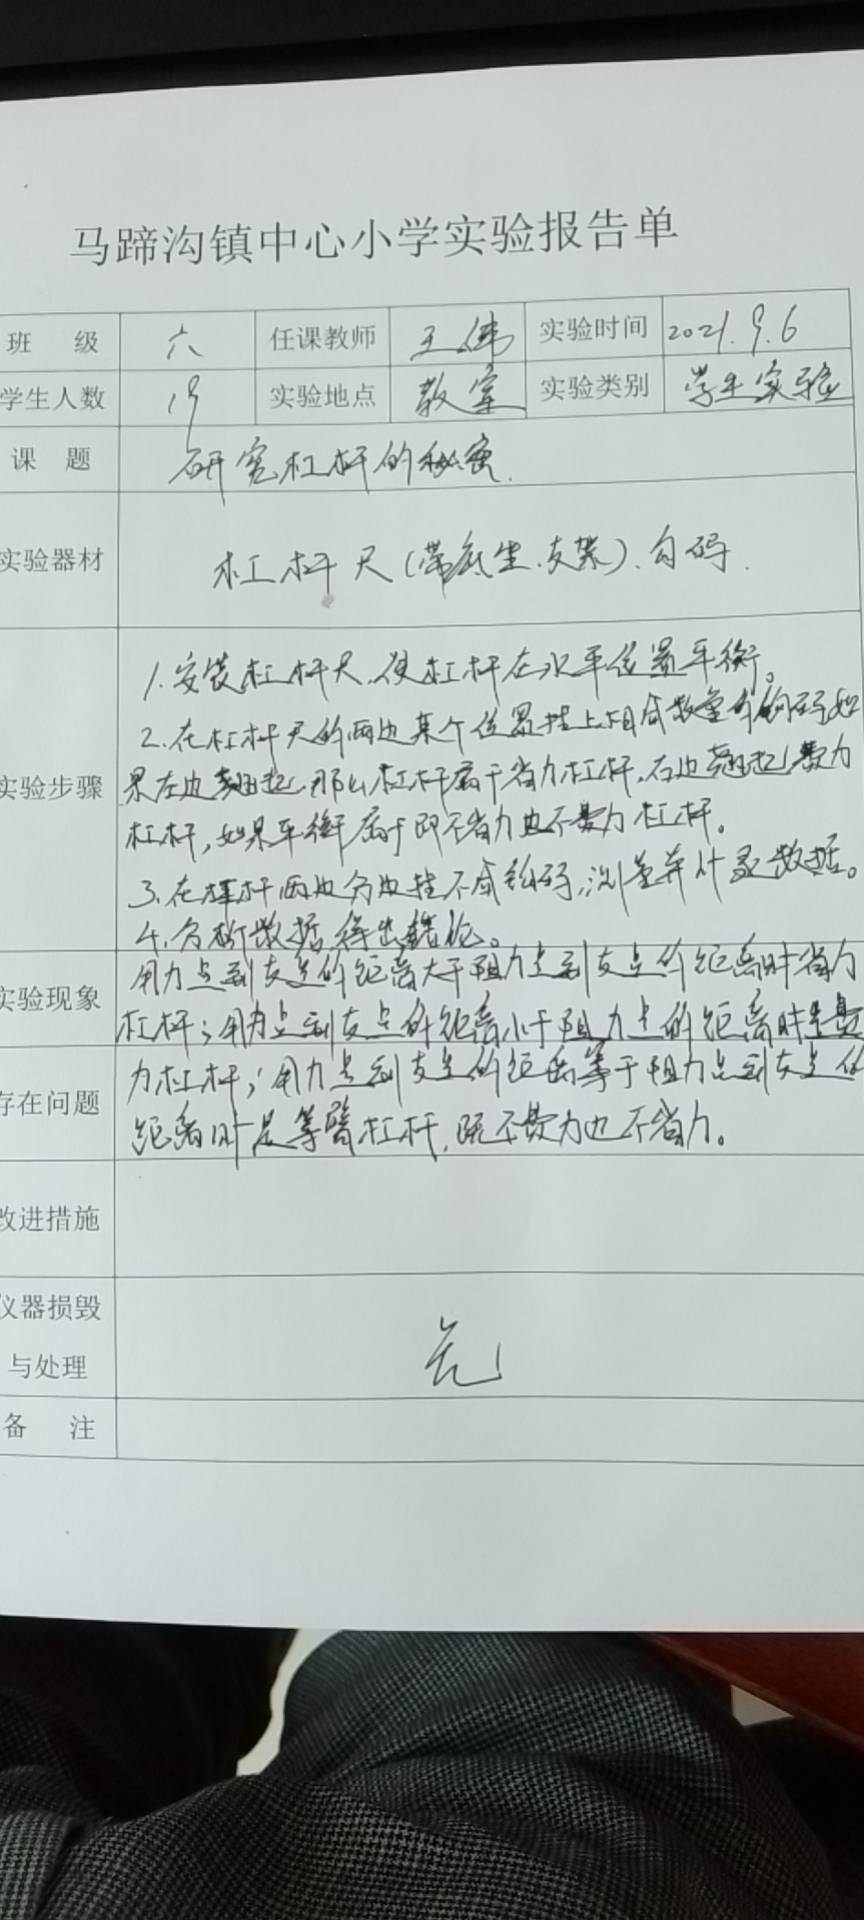 马蹄沟镇中心小学实验报告单
班 级 六 任课教师 王伟 实验时间 2021.9.6
学生人数 19 实验地点 教室 实验类别 学生实验
课 题 研究杠杆的秘密.
实验器材 杠杆尺(带底坐.支架).勾码.
1.安装杠杆尺,使杠杆在水平位置平衡。
2.在杠杆尺的两边某个位置挂上相同数量的钩码如
实验步骤 果左边翘起,那么杠杆属于省力杠杆,右边翘起费力
杠杆,如果平衡属于即不省力也不费力杠杆。
3.在杠杆两边分边挂不同钩码,测量并计录数据。
4.分析数据,得出结论。
用力点到支点的距离大于阻力点到支点的距离时省力
实验现象 杠杆;用力点到支点的距离小于阻力点的距离时是费
力杠杆;用力点到支点的距离等于阻力点到支点的
存在问题 距离时是等臂杠杆,既不费力也不省力。
改进措施
仪器损毁 无
与处理
备 注